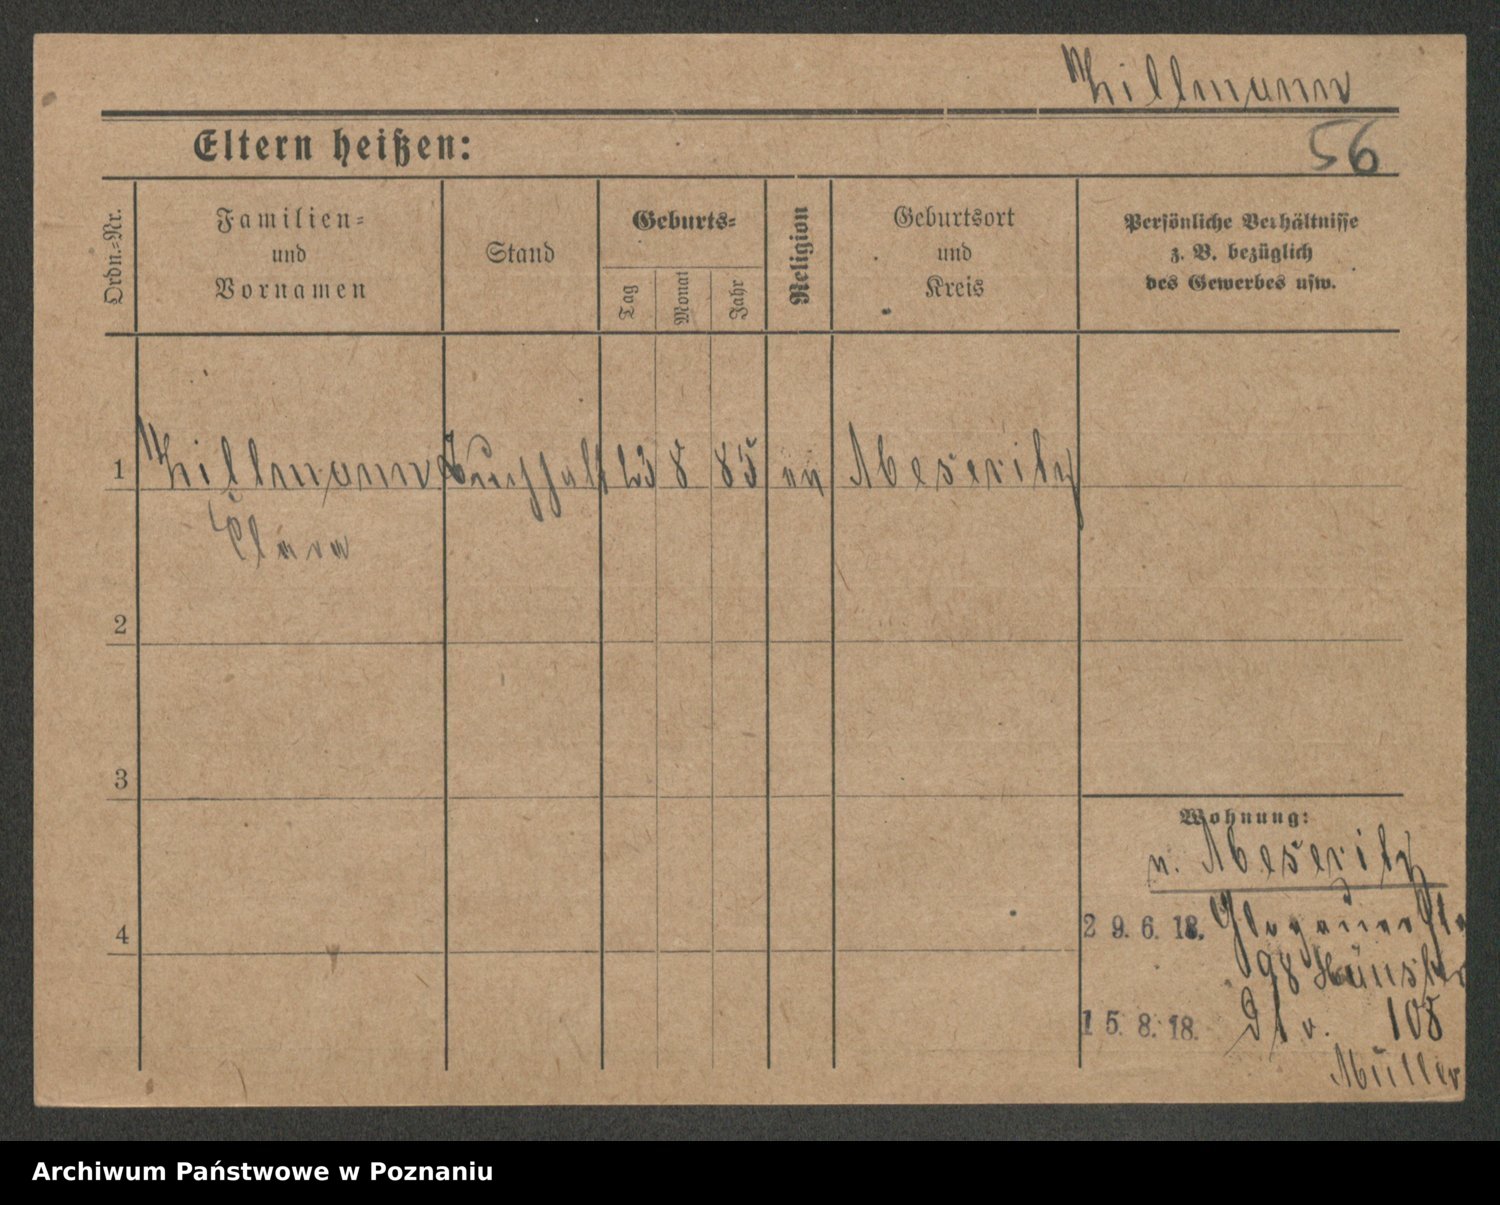 Hillmann
56
Eltern heißen:
Ordn.-Nr.
Familien-
und
Vornamen
Stand
Geburts-
Tag
Monat
Jahr
Religion
Geburtsort
und
Kreis
Persönliche Verhältnisse
z. B. bezüglich
des Gewerbes usw.
1 Hillmann Buchhalt 23 8 85 ev Meseritz
Clara
2
3
4
Wohnung:
v. Meseritz
29.6.18. Glogauerstr
98
15.8.18. Dto. 108
Müller
Archiwum Państwowe w Poznaniu